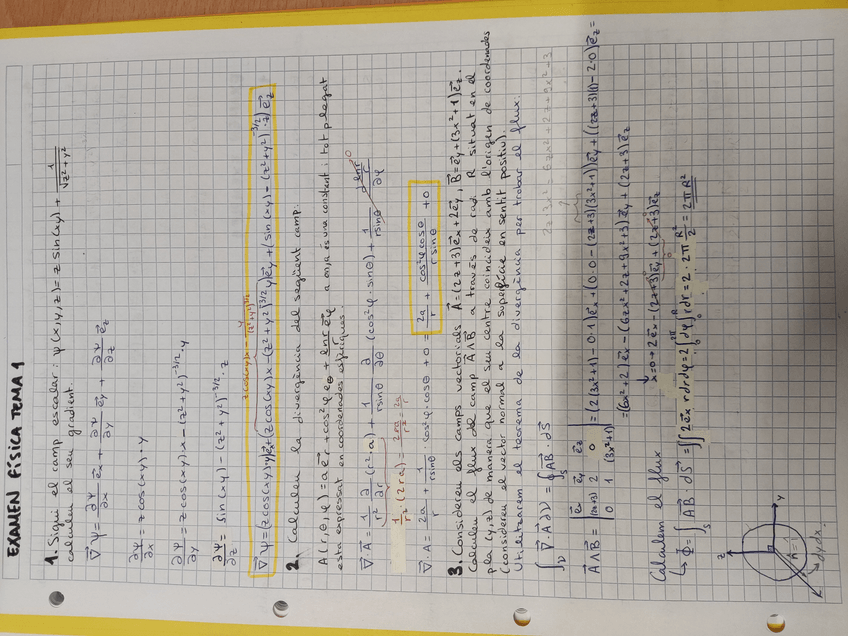 EXAMEN FÍSICA TEMA 1
1. Sigui el camp escalar: ψ(x,y,z) = z sin(xy) + 1/√(z²+y²)
calculeu el seu gradient.
∇ψ = ∂ψ/∂x ēx + ∂ψ/∂y ēy + ∂ψ/∂z ēz
∂ψ/∂x = z cos(xy)·y
∂ψ/∂y = z cos(xy)·x − (z²+y²)^(-3/2)·y
∂ψ/∂z = sin(xy) − (z²+y²)^(-3/2)·z
z cos(xy)x − y/(z²+y²)^(3/2)
∇ψ = (z cos(xy)·y)ēx + (z cos(xy)x − (z²+y²)^(-3/2) y)ēy + (sin(xy) − (z²+y²)^(-3/2)·z) ēz
2. Calculeu la divergència del següent camp:
A(r,θ,φ) = a ēr + cos²φ ēθ + lnr ēφ a on, a és una constant i tot plegat
està expressat en coordenades esfèriques.
∇·A = 1/r² ∂/∂r (r²·a) + 1/(r sinθ) ∂/∂θ (cos²φ·sinθ) + 1/(r sinθ) ∂lnr/∂φ 0
1/r² (2ra) = 2ra/r² = 2a/r
∇·A = 2a/r + 1/(r sinθ) cos²φ·cosθ + 0 = 2a/r + cos²φ cosθ/(r sinθ) + 0
3. Considereu els camps vectorials A = (2z+3)ēx + 2ēy, B = ēy + (3x²+1)ēz.
Calculeu el flux del camp A∧B a través de radi R situat en el
pla (y,z) de manera que el seu centre coincideix amb l'origen de coordenades
(considereu el vector normal a la superfície en sentit positiu).
Utilitzarem el teorema de la divergència per trobar el flux.
∫v ∇·A dV = ∮s AB·dS
A∧B = |ēx ēy ēz; (2z+3) 2 0; 0 1 (3x²+1)| = (2(3x²+1) − 0·1)ēx + (0·0 − (2z+3)(3x²+1))ēy + ((2z+3)(1) − 2·0)ēz =
= (6x²+2)ēx − (6zx²+2z+9x²+3)ēy + (2z+3)ēz
Calculem el flux
x=0 → 2ēx − (2z+3)ēy + (2z+3)ēz
↳ Φ = ∫s AB dS = ∬ 2ēx r dr dφ = 2 ∫₀^2π dφ ∫₀^R r dr = 2 · 2π R²/2 = 2πR²
z
y
R
x
dydz